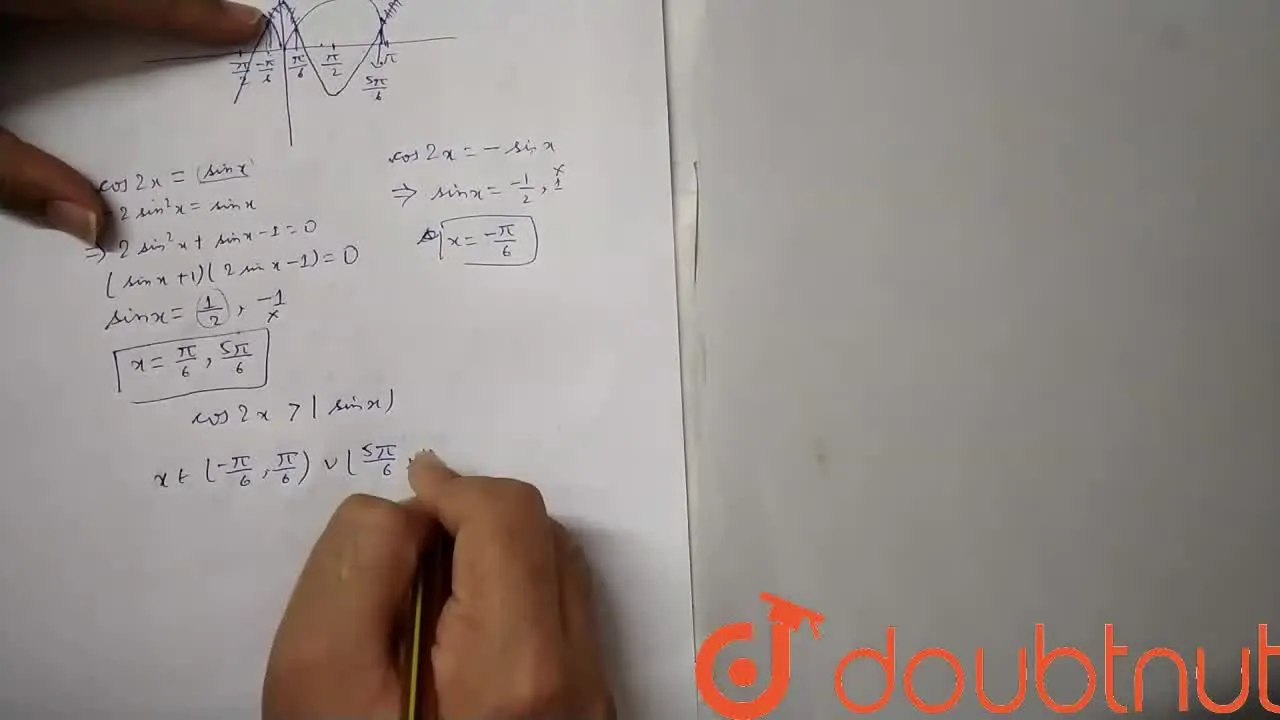 -π/2 -π/6 π/6 π/2 π
5π/6
cos2x = |sinx|
-2 sin²x = sinx
⇒ 2 sin²x + sinx-1=0
(sinx+1)(2 sinx-1)=0
sinx = 1/2, -1
×
x = π/6, 5π/6
cos2x = - sinx
⇒ sinx = -1/2, 1
×
x = -π/6
cos2x > |sinx|
x ∈ (-π/6, π/6) ∪ (5π/6,
doubtnut